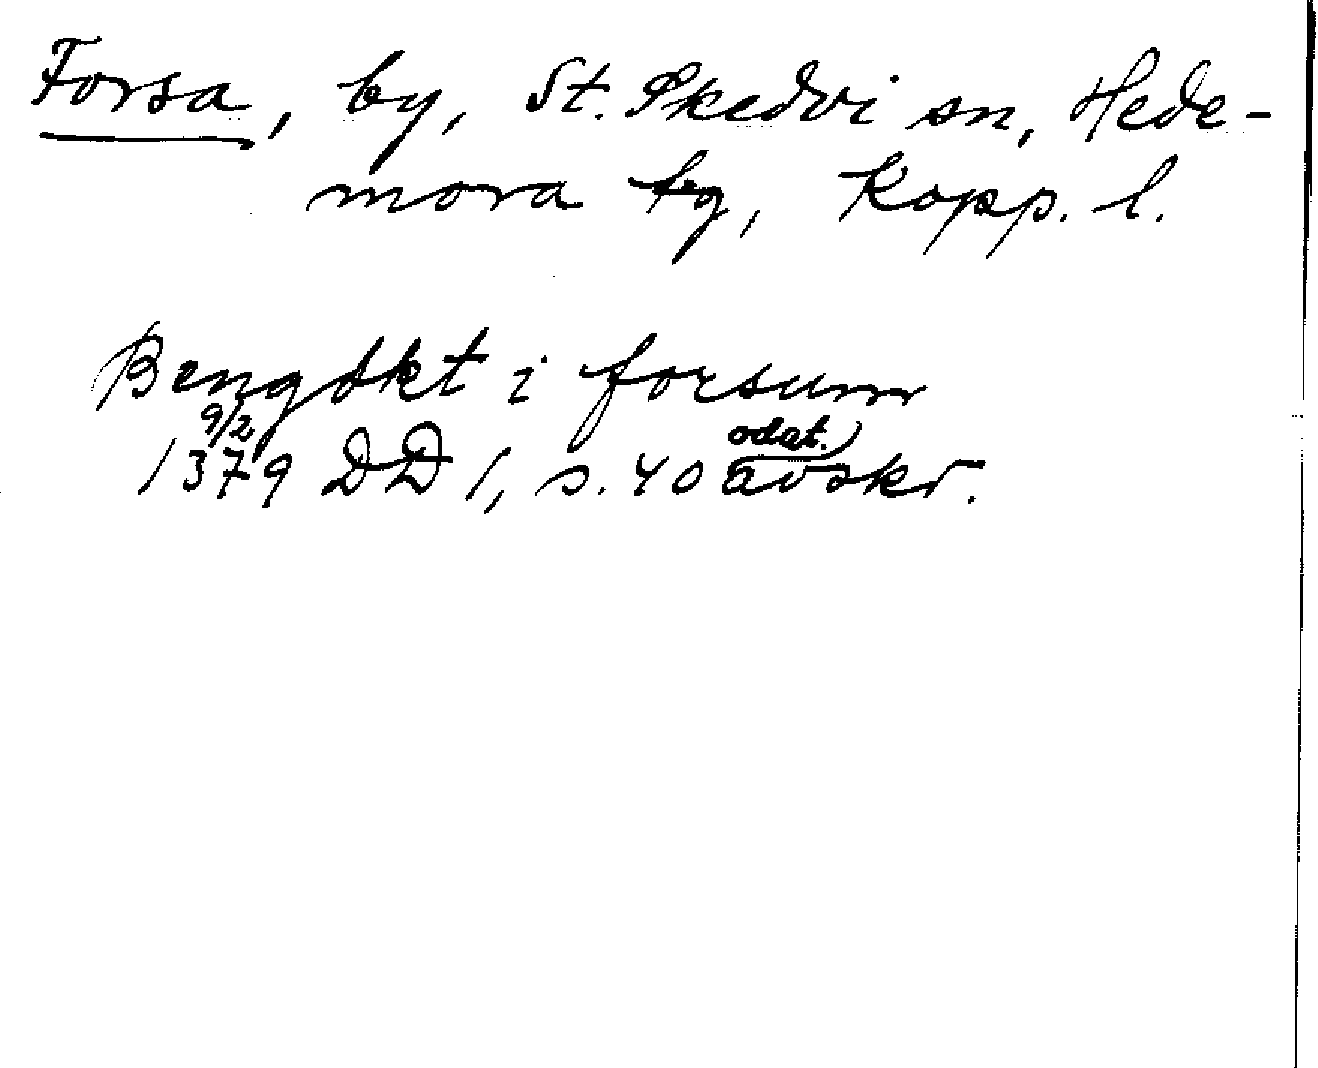 Forsa, by, St. Skedvi sn, Hede-
mora tg, Kopp. l.
Bengdkt i forsum
9/2 odat.)
1379 DD 1, s. 40 avskr.